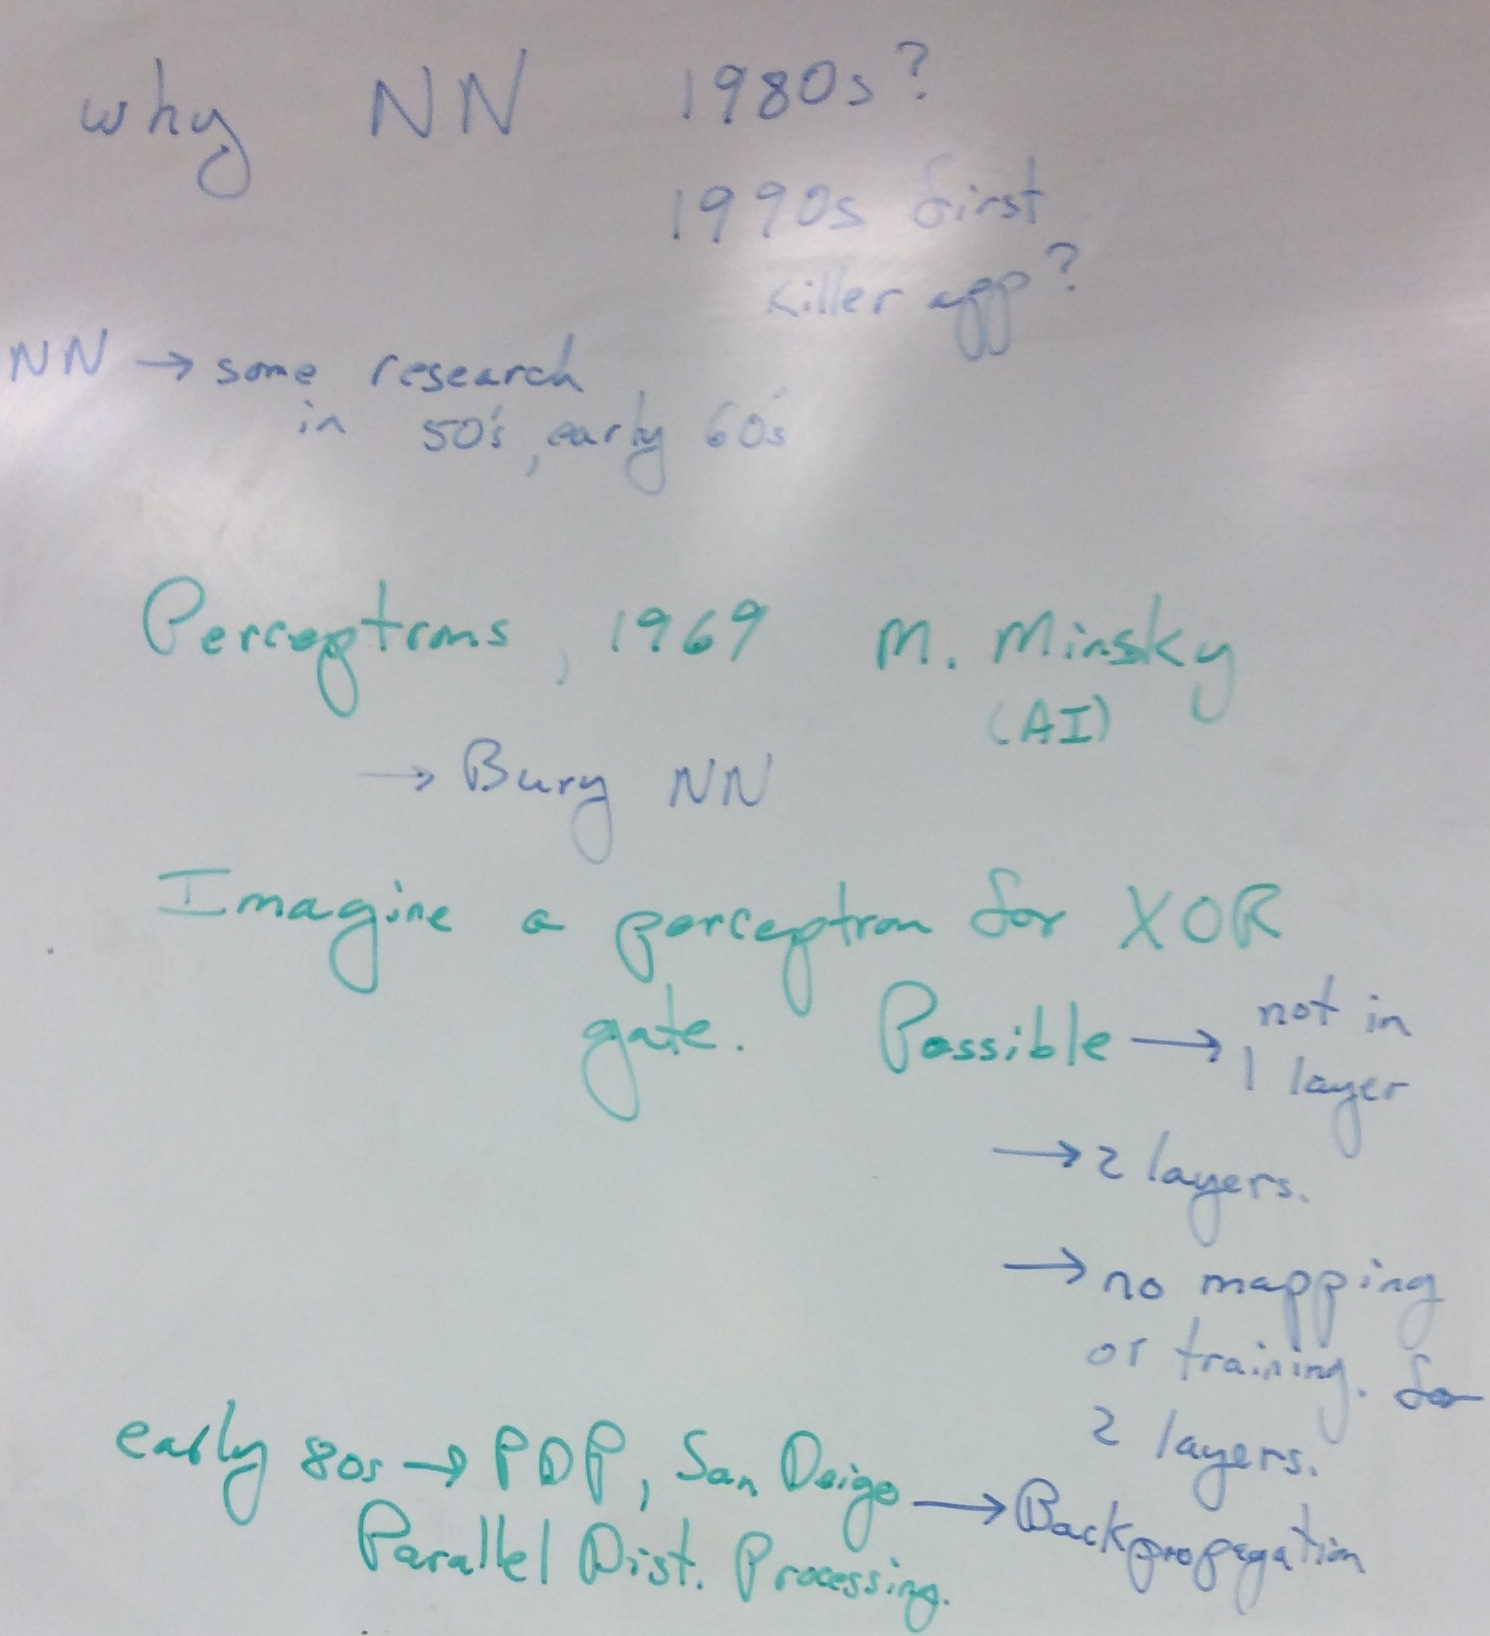 why NN 1980s?
1990s first
Killer app?
NN → some research
in 50's, early 60's
Perceptrons, 1969 M. Minsky
(AI)
→ Bury NN
Imagine a perceptron for XOR
gate. Possible → not in
1 layer
→ 2 layers.
→ no mapping
or training. for
2 layers.
early 80s → PDP, San Deigo → Backpropagation
Parallel Dist. Processing.